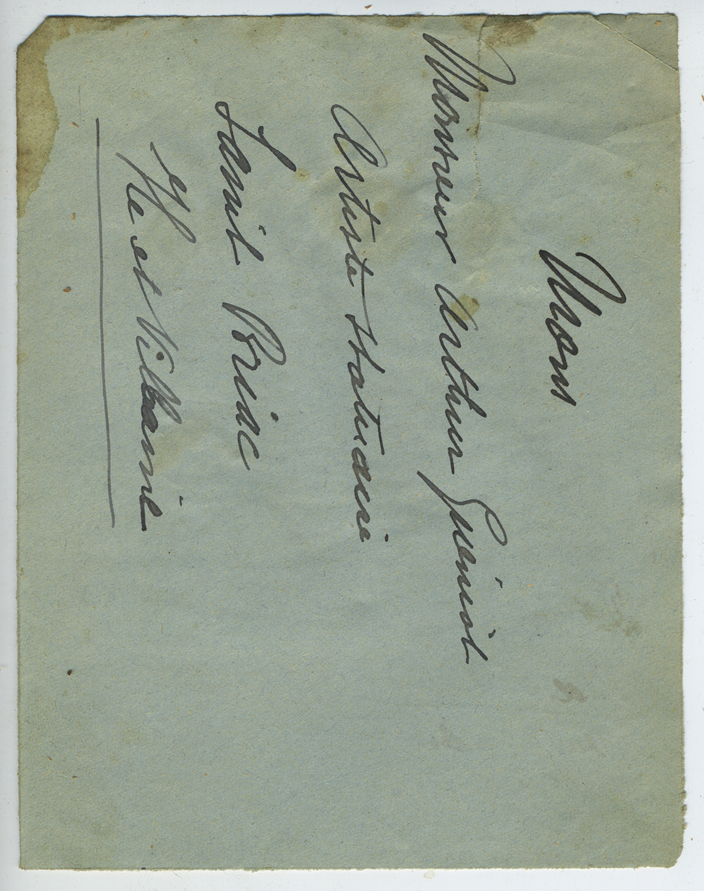 Mons
Monsieur Arthur Guéniot
Artiste statuaire
Saint Briac
Ile et Vilaine